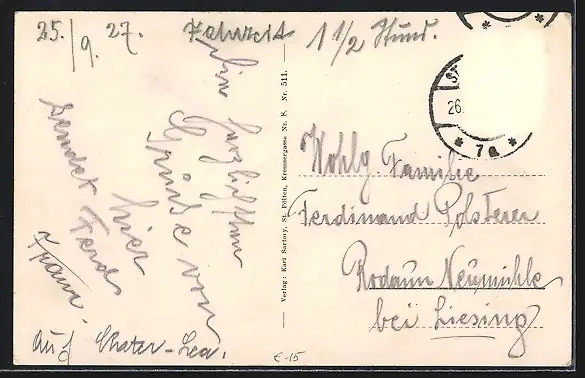 25./9. 27. Fahrzeit 1 1/2 Stund.
Die herzlichsten
Grüße von
hier
sendet Ferd.
Franz.
Auf Chater-Lea.
Verlag: Karl Sartory, St. Pölten, Kremsergasse Nr. 8. Nr. 511.
ST
26.
* 7a *
Wohlg Familie
Ferdinand Polsterer
Rodaun Neumühle
bei Liesing
€-15